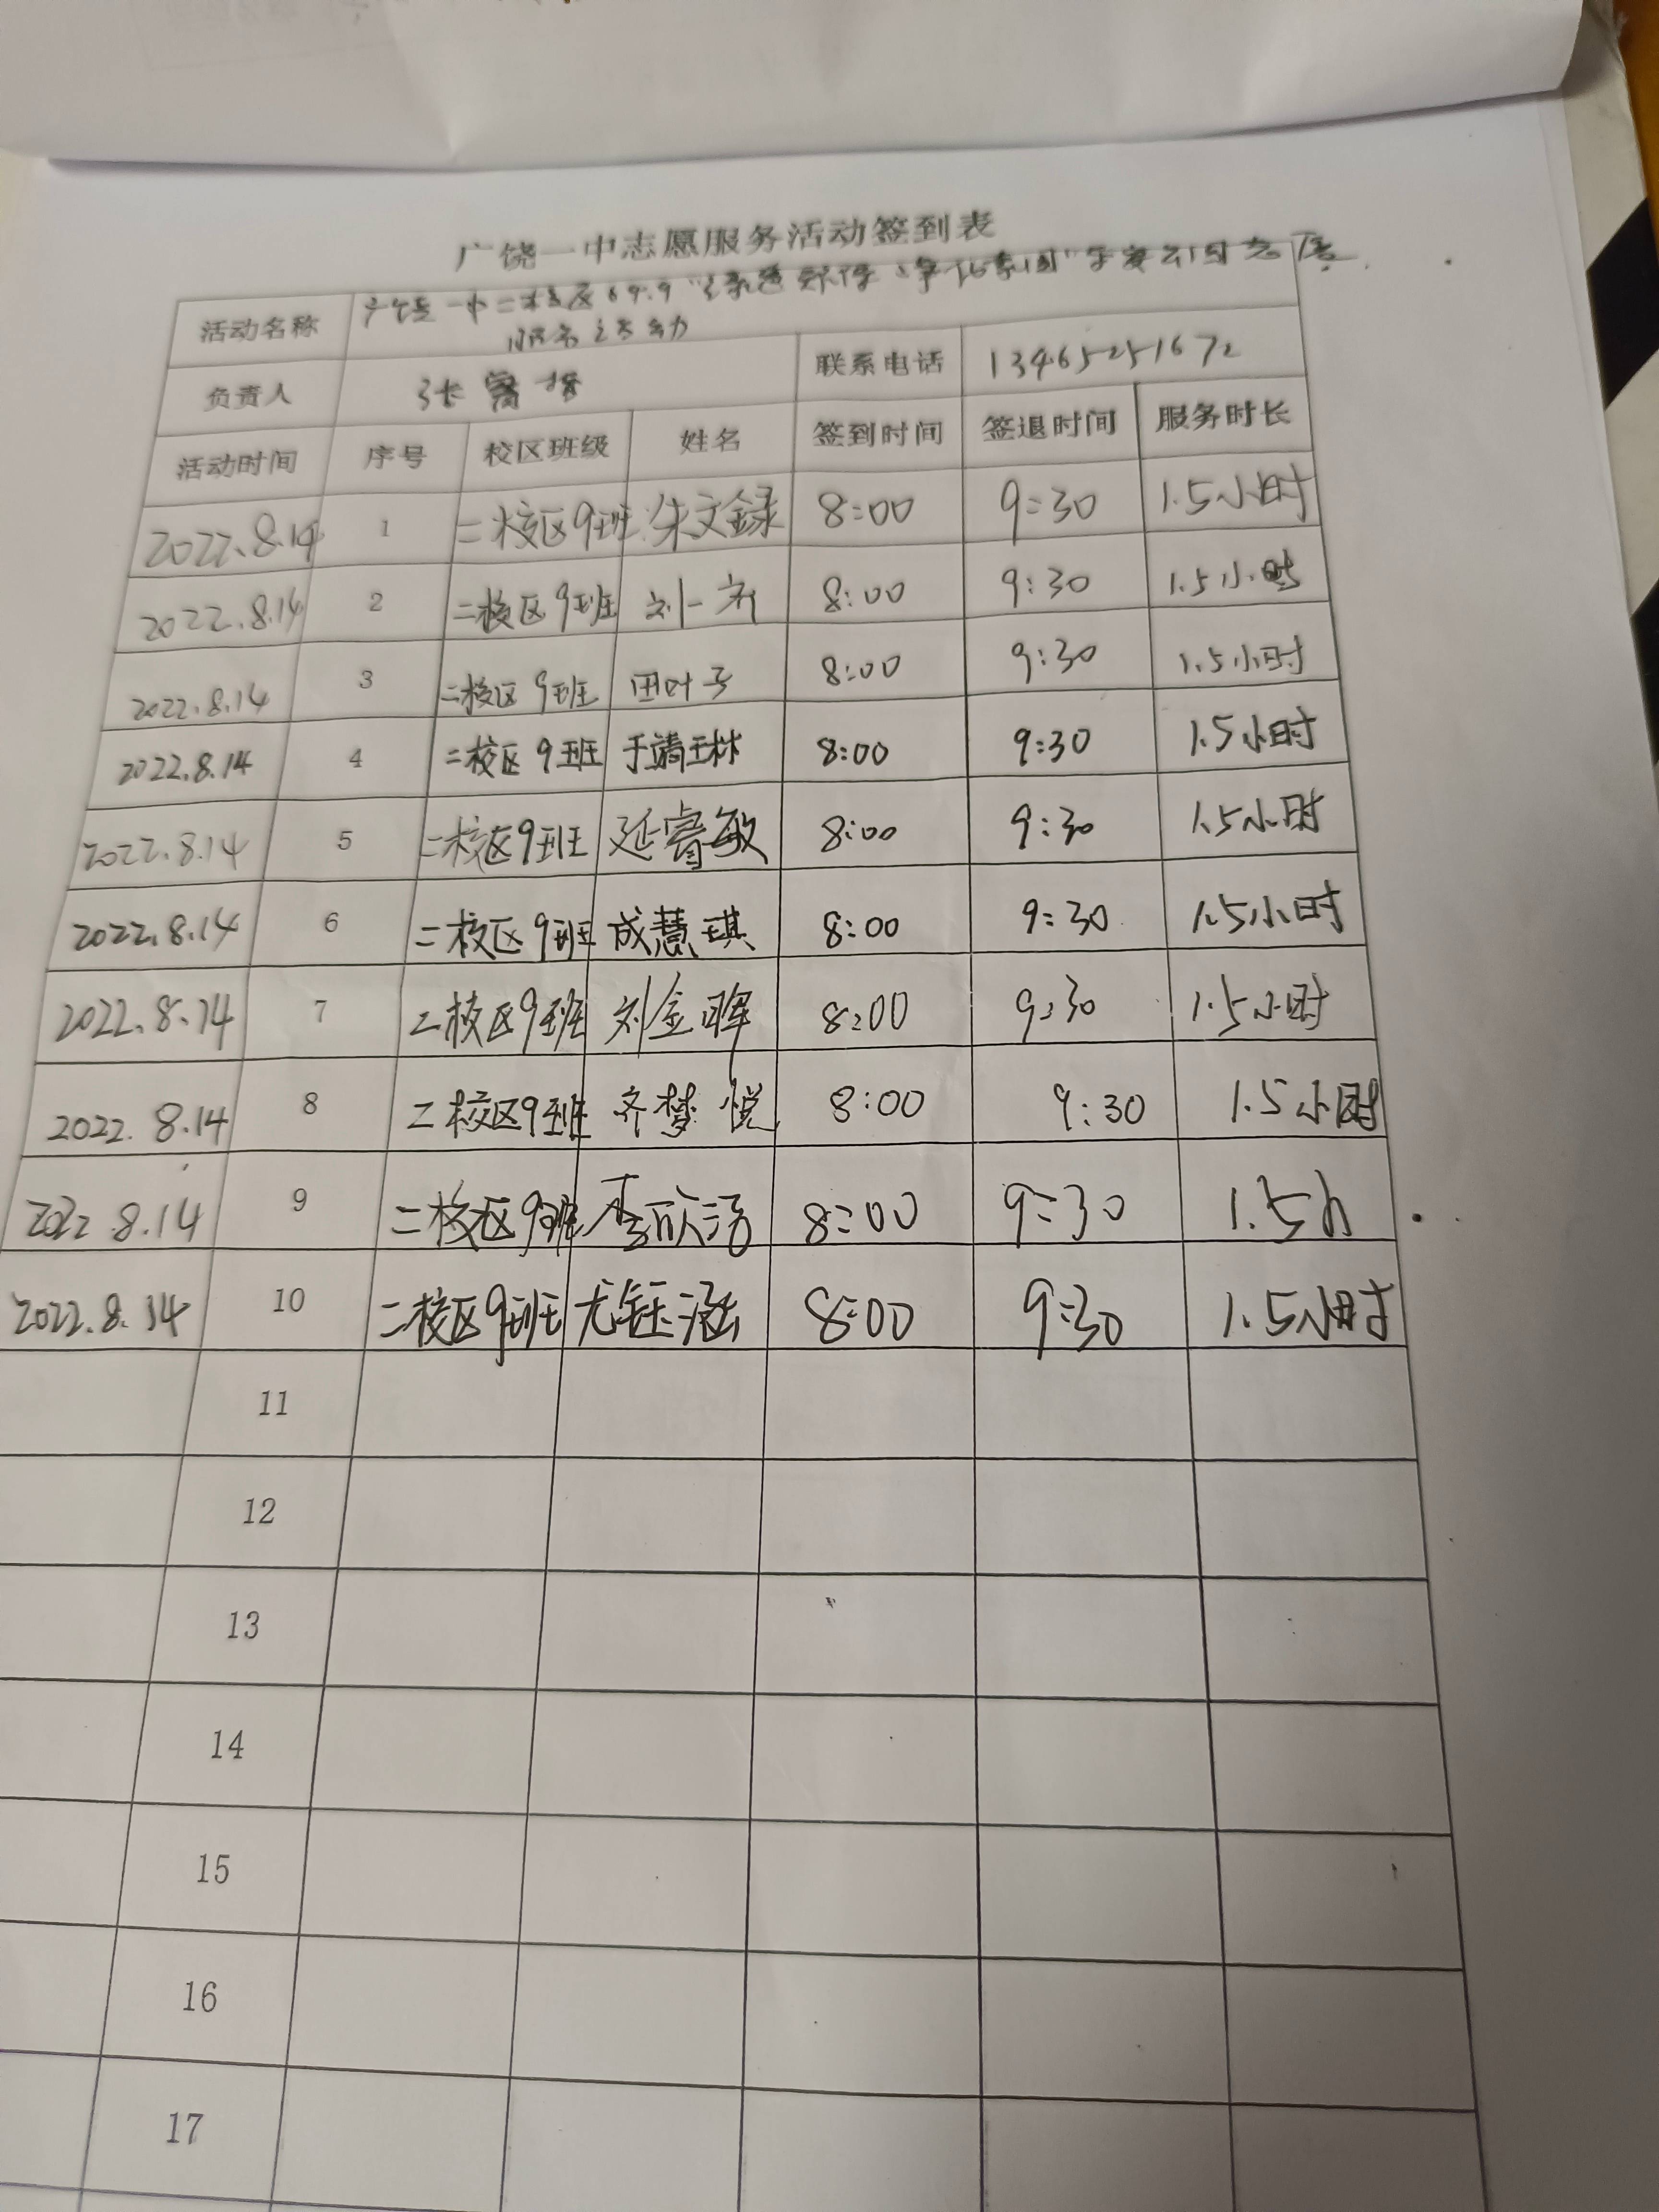 广饶一中志愿服务活动签到表
活动名称 广饶一中二校区
服务活动
负责人 张 联系电话 13465251672
活动时间 序号 校区班级 姓名 签到时间 签退时间 服务时长
2022.8.14 1 二校区9班 朱文録 8:00 9:30 1.5小时
2022.8.14 2 二校区9班 刘一齐 8:00 9:30 1.5小时
2022.8.14 3 二校区9班 田叶子 8:00 9:30 1.5小时
2022.8.14 4 二校区9班 于靖琳 8:00 9:30 1.5小时
2022.8.14 5 二校区9班 延睿敏 8:00 9:30 1.5小时
2022.8.14 6 二校区9班 成慧琪 8:00 9:30 1.5小时
2022.8.14 7 二校区9班 刘金晖 8:00 9:30 1.5小时
2022.8.14 8 二校区9班 齐梦悦 8:00 9:30 1.5小时
2022.8.14 9 二校区9班 李欣汤 8:00 9:30 1.5h
2022.8.14 10 二校区9班 尤钰涵 8:00 9:30 1.5小时
11
12
13
14
15
16
17